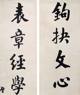 鉤抉文心
表章經學